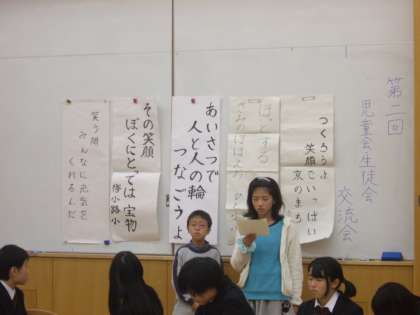 第二回
児童会生徒会
交流会
つくろうよ
笑顔でいっぱい
京のまち
ほっとする
あいさつで
人と人の輪
つなごうよ
その笑顔
ぼくにとっては
宝物
笑う顔
みんなに元気を
くれるんだ